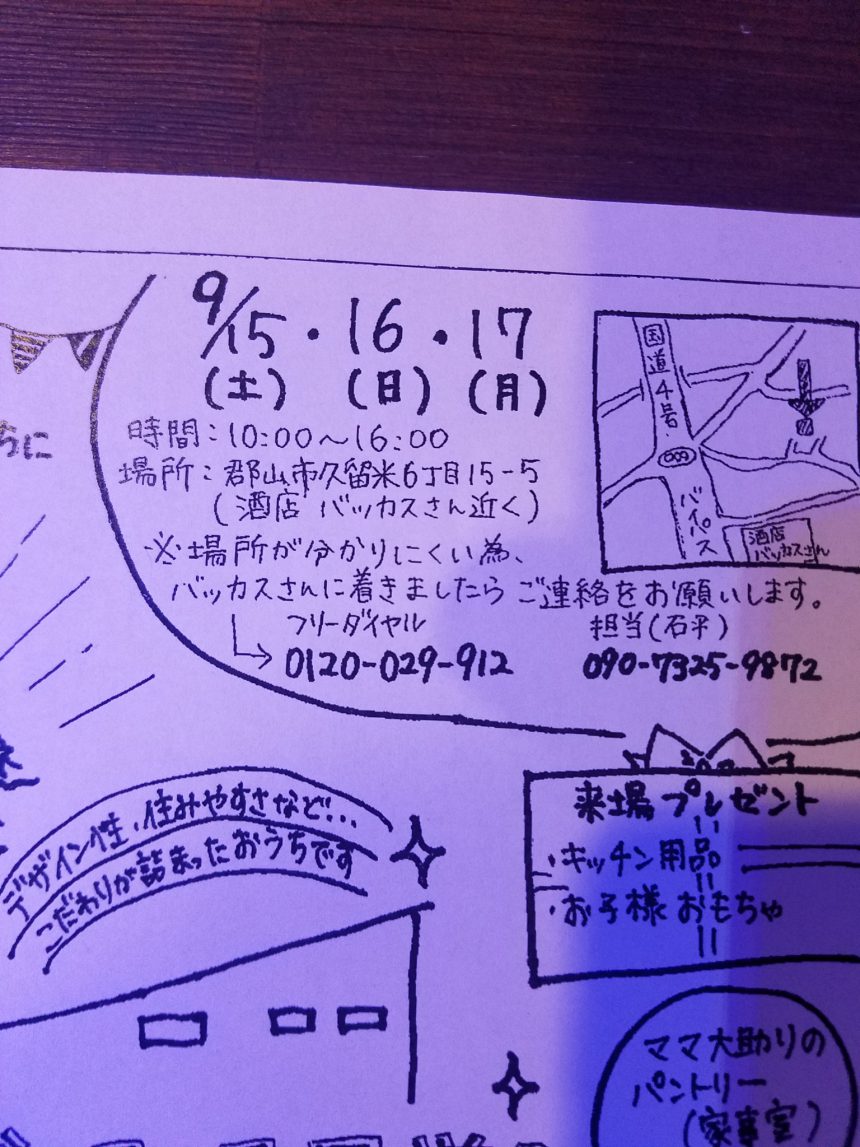 9/15・16・17
(土) (日) (月)
時間：10:00～16:00
場所：郡山市久留米6丁目15-5
(酒店 バッカスさん近く)
※場所が分かりにくい為、
バッカスさんに着きましたら ご連絡をお願いします。
フリーダイヤル
0120-029-912
担当(石平)
090-7325-9872
国道4号
バイパス
酒店
バッカスさん
ちに
デザイン性、住みやすさなど…
こだわりが詰まったおうちです
来場プレゼント
・キッチン用品
・お子様おもちゃ
ママ大助りの
パントリー
(家事室)